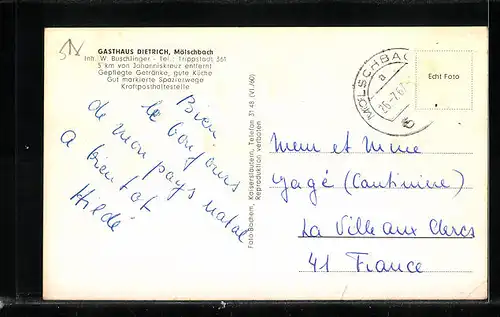 GASTHAUS DIETRICH, Mölschbach
Inh. W. Buschlinger - Tel.: Trippstadt 361
5 km von Johanniskreuz entfernt
Gepflegte Getränke, gute Küche
Gut markierte Spazierwege
Kraftposthaltestelle
Bien
le bonjour
de mon pays natal
a bientot
Hilde
Foto-Bochem, Kaiserslautern, Telefon 31 48 (VI/60)
Reproduktion verboten
MÖLSCHBACH
a
Echt Foto
Meur et Mme
Yagé (Cantinière)
La Ville aux Clercs
41 France